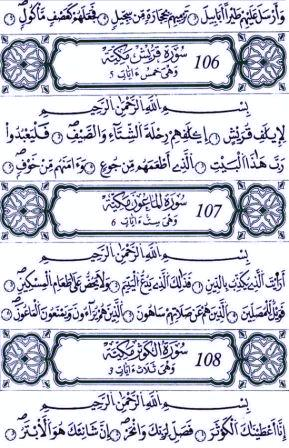 وَأَرْسَلَ عَلَيْهِمْ طَيْراً أَبَابِيلَ تَرْمِيهِم بِحِجَارَةٍ مِّن سِجِّيلٍ فَجَعَلَهُمْ كَعَصْفٍ مَّاكُولٍ
سُورَةُ قُرَيْشٍ مَكِّيَّة 106
وَهِيَ خَمْسُ ءَايَاتٍ 5
بِسْمِ اللَّهِ الرَّحْمَٰنِ الرَّحِيمِ
لِإِيلَٰفِ قُرَيْشٍ إِۦلَٰفِهِمْ رِحْلَةَ الشِّتَآءِ وَالصَّيْفِ فَلْيَعْبُدُوا
رَبَّ هَٰذَا الْبَيْتِ الَّذِي أَطْعَمَهُم مِّن جُوعٍ وَءَامَنَهُم مِّنْ خَوْفٍ
سُورَةُ الْمَاعُونِ مَكِّيَّة 107
وَهِيَ سِتُّ ءَايَاتٍ 6
بِسْمِ اللَّهِ الرَّحْمَٰنِ الرَّحِيمِ
أَرَٰيْتَ الَّذِي يُكَذِّبُ بِالدِّينِ فَذَٰلِكَ الَّذِي يَدُعُّ الْيَتِيمَ وَلَا يَحُضُّ عَلَىٰ طَعَامِ الْمِسْكِينِ
فَوَيْلٌ لِّلْمُصَلِّينَ الَّذِينَ هُمْ عَن صَلَاتِهِمْ سَاهُونَ الَّذِينَ هُمْ يُرَآءُونَ وَيَمْنَعُونَ الْمَاعُونَ
سُورَةُ الْكَوْثَرِ مَكِّيَّة 108
وَهِيَ ثَلَاثُ ءَايَاتٍ 3
بِسْمِ اللَّهِ الرَّحْمَٰنِ الرَّحِيمِ
إِنَّا أَعْطَيْنَٰكَ الْكَوْثَرَ فَصَلِّ لِرَبِّكَ وَانْحَرْ إِنَّ شَانِئَكَ هُوَ الْأَبْتَرُ